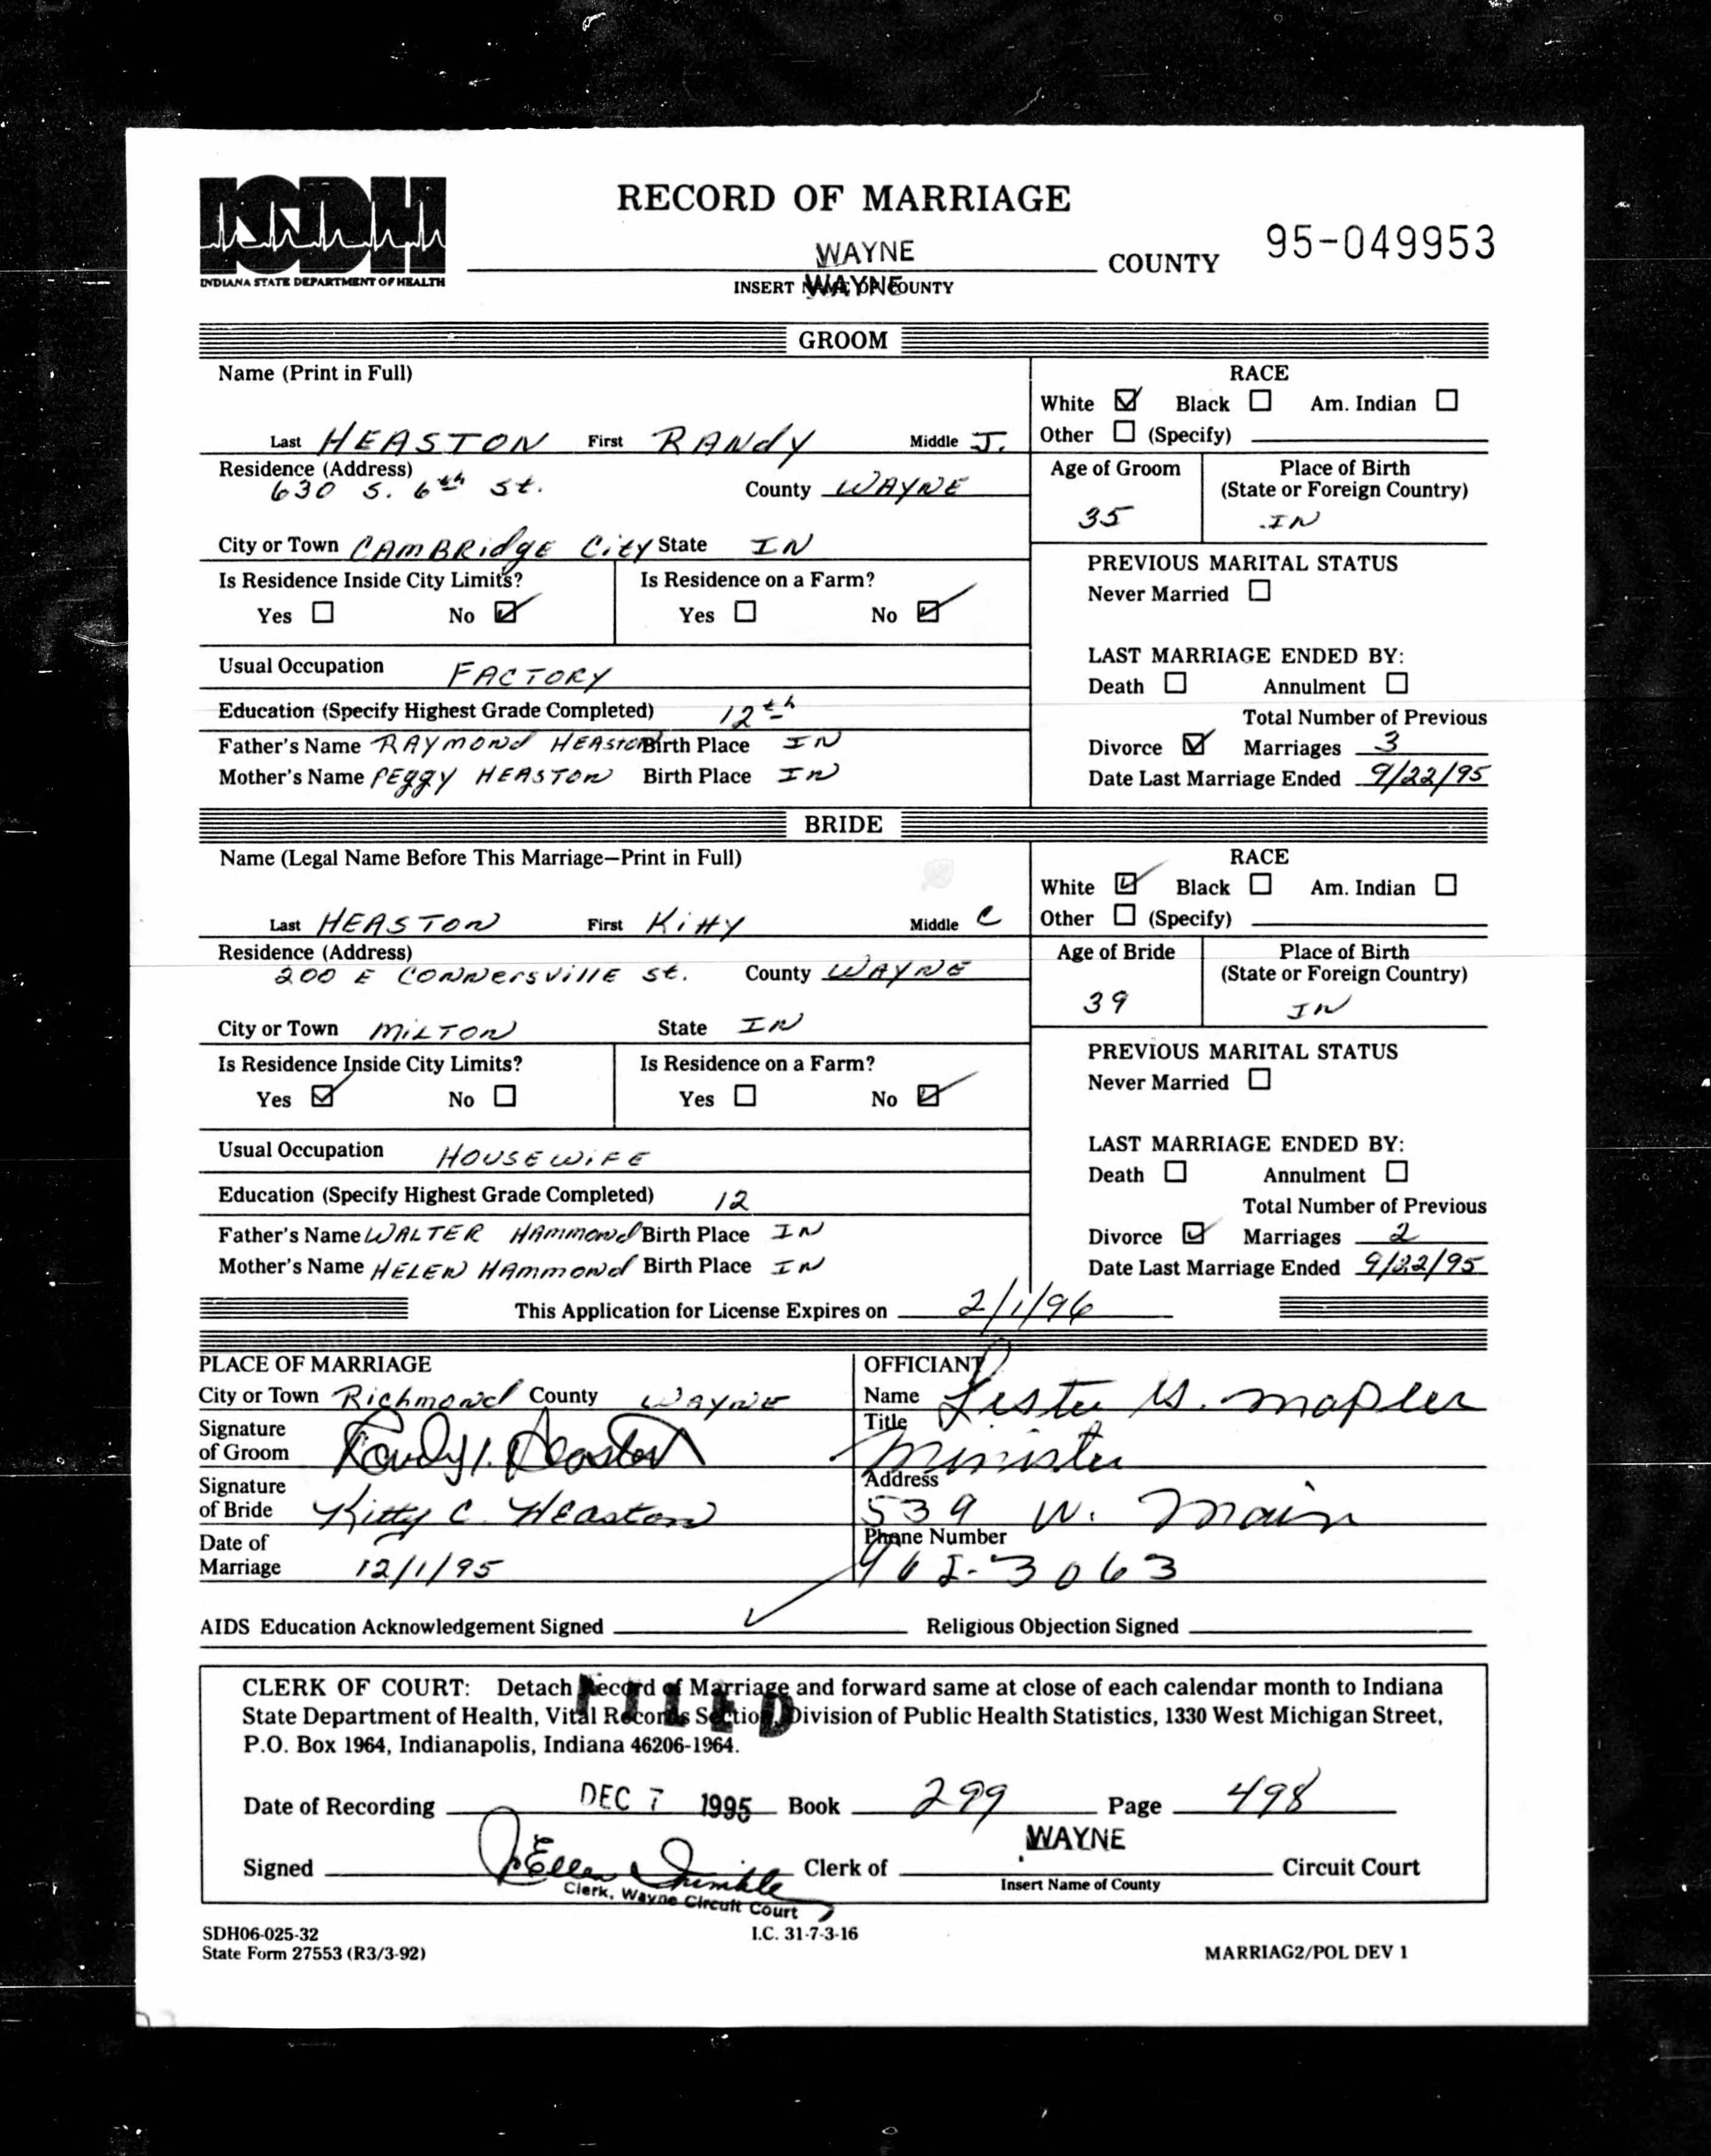 ISDH
INDIANA STATE DEPARTMENT OF HEALTH
RECORD OF MARRIAGE
WAYNE COUNTY 95-049953
INSERT NAME OF COUNTY
WAYNE
GROOM
Name (Print in Full)
Last HEASTON First RANdY Middle J.
RACE
White ☑ Black ☐ Am. Indian ☐
Other ☐ (Specify)
Residence (Address)
630 S. 6th St. County WAYNE
City or Town CAMBRidgE CitY State IN
Age of Groom
35
Place of Birth
(State or Foreign Country)
IN
Is Residence Inside City Limits?
Yes ☐ No ☑
Is Residence on a Farm?
Yes ☐ No ☑
PREVIOUS MARITAL STATUS
Never Married ☐
Usual Occupation FACTORY
Education (Specify Highest Grade Completed) 12th
Father's Name RAYMONd HEAStON Birth Place IN
Mother's Name PEggY HEASTON Birth Place IN
LAST MARRIAGE ENDED BY:
Death ☐ Annulment ☐
Total Number of Previous
Divorce ☑ Marriages 3
Date Last Marriage Ended 9/22/95
BRIDE
Name (Legal Name Before This Marriage–Print in Full)
Last HEASTON First KittY Middle C
RACE
White ☑ Black ☐ Am. Indian ☐
Other ☐ (Specify)
Residence (Address)
200 E CONNersVillE St. County WAYNE
City or Town MiLTON State IN
Age of Bride
39
Place of Birth
(State or Foreign Country)
IN
Is Residence Inside City Limits?
Yes ☑ No ☐
Is Residence on a Farm?
Yes ☐ No ☑
PREVIOUS MARITAL STATUS
Never Married ☐
Usual Occupation HOUSEWiFE
Education (Specify Highest Grade Completed) 12
Father's Name WALTER HAMMONd Birth Place IN
Mother's Name HELEN HAMMONd Birth Place IN
LAST MARRIAGE ENDED BY:
Death ☐ Annulment ☐
Total Number of Previous
Divorce ☑ Marriages 2
Date Last Marriage Ended 9/22/95
This Application for License Expires on 2/1/96
PLACE OF MARRIAGE
City or Town Richmond County WAYNE
Signature
of Groom Randy J. Heaston
Signature
of Bride Kitty C. Heaston
Date of
Marriage 12/1/95
OFFICIANT
Name Lester Mapler
Title
Minister
Address
539 W. Main
Phone Number
3063
AIDS Education Acknowledgement Signed ✓ Religious Objection Signed
CLERK OF COURT: Detach Record of Marriage and forward same at close of each calendar month to Indiana
State Department of Health, Vital Records Section, Division of Public Health Statistics, 1330 West Michigan Street,
P.O. Box 1964, Indianapolis, Indiana 46206-1964.
FILED
Date of Recording DEC 7 1995 Book 299 Page 498
Signed Ellen Trimble Clerk of WAYNE Circuit Court
Clerk, Wayne Circuit Court
Insert Name of County
SDH06-025-32
State Form 27553 (R3/3-92)
I.C. 31-7-3-16
MARRIAG2/POL DEV 1